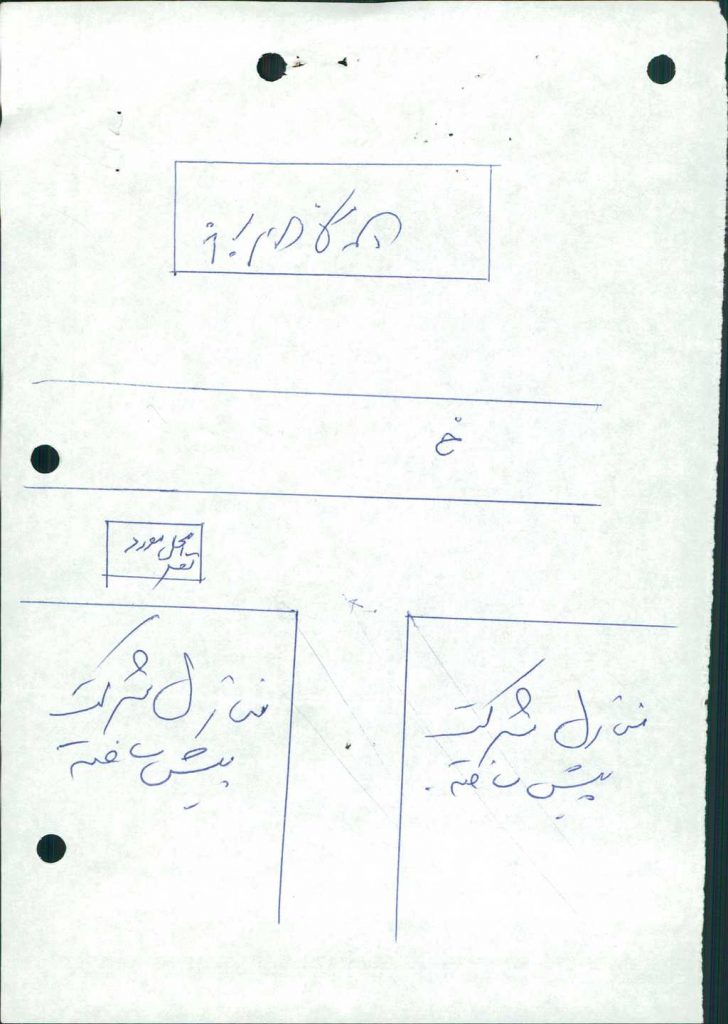 خ
محل مورد
نظر
منازل شرکت
پیش ساخته
منازل شرکت
پیش ساخته